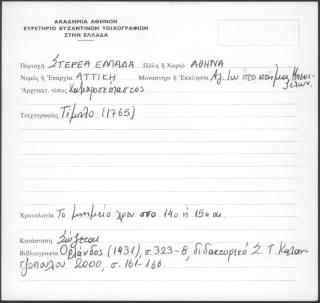 ΑΚΑΔΗΜΙΑ ΑΘΗΝΩΝ
ΕΥΡΕΤΗΡΙΟ ΒΥΖΑΝΤΙΝΩΝ ΤΟΙΧΟΓΡΑΦΙΩΝ
ΣΤΗΝ ΕΛΛΑΔΑ
Περιοχή ΣΤΕΡΕΑ ΕΛΛΑΔΑ Πόλη ἤ Χωριό ΑΘΗΝΑ
Νομός ἤ Ἐπαρχία ΑΤΤΙΚΗ Μοναστήρι ἤ Ἐκκλησία Αγ. Ιω στο κτήμα
Ἀρχιτεκτ. τύπος Καμαροσκέπαστος
Τοιχογραφίες Τέμπλο (1765)
Χρονολογία Το μνημείο χρον στο 14ο ή 15ο αι.
Κατάσταση Σώζεται
Βιβλιογραφία Ορλάνδος (1931), σ. 323-8, διδακτορικό Σ. Τ. Καλαν
τζοπούλου 2000, σ. 161-166.